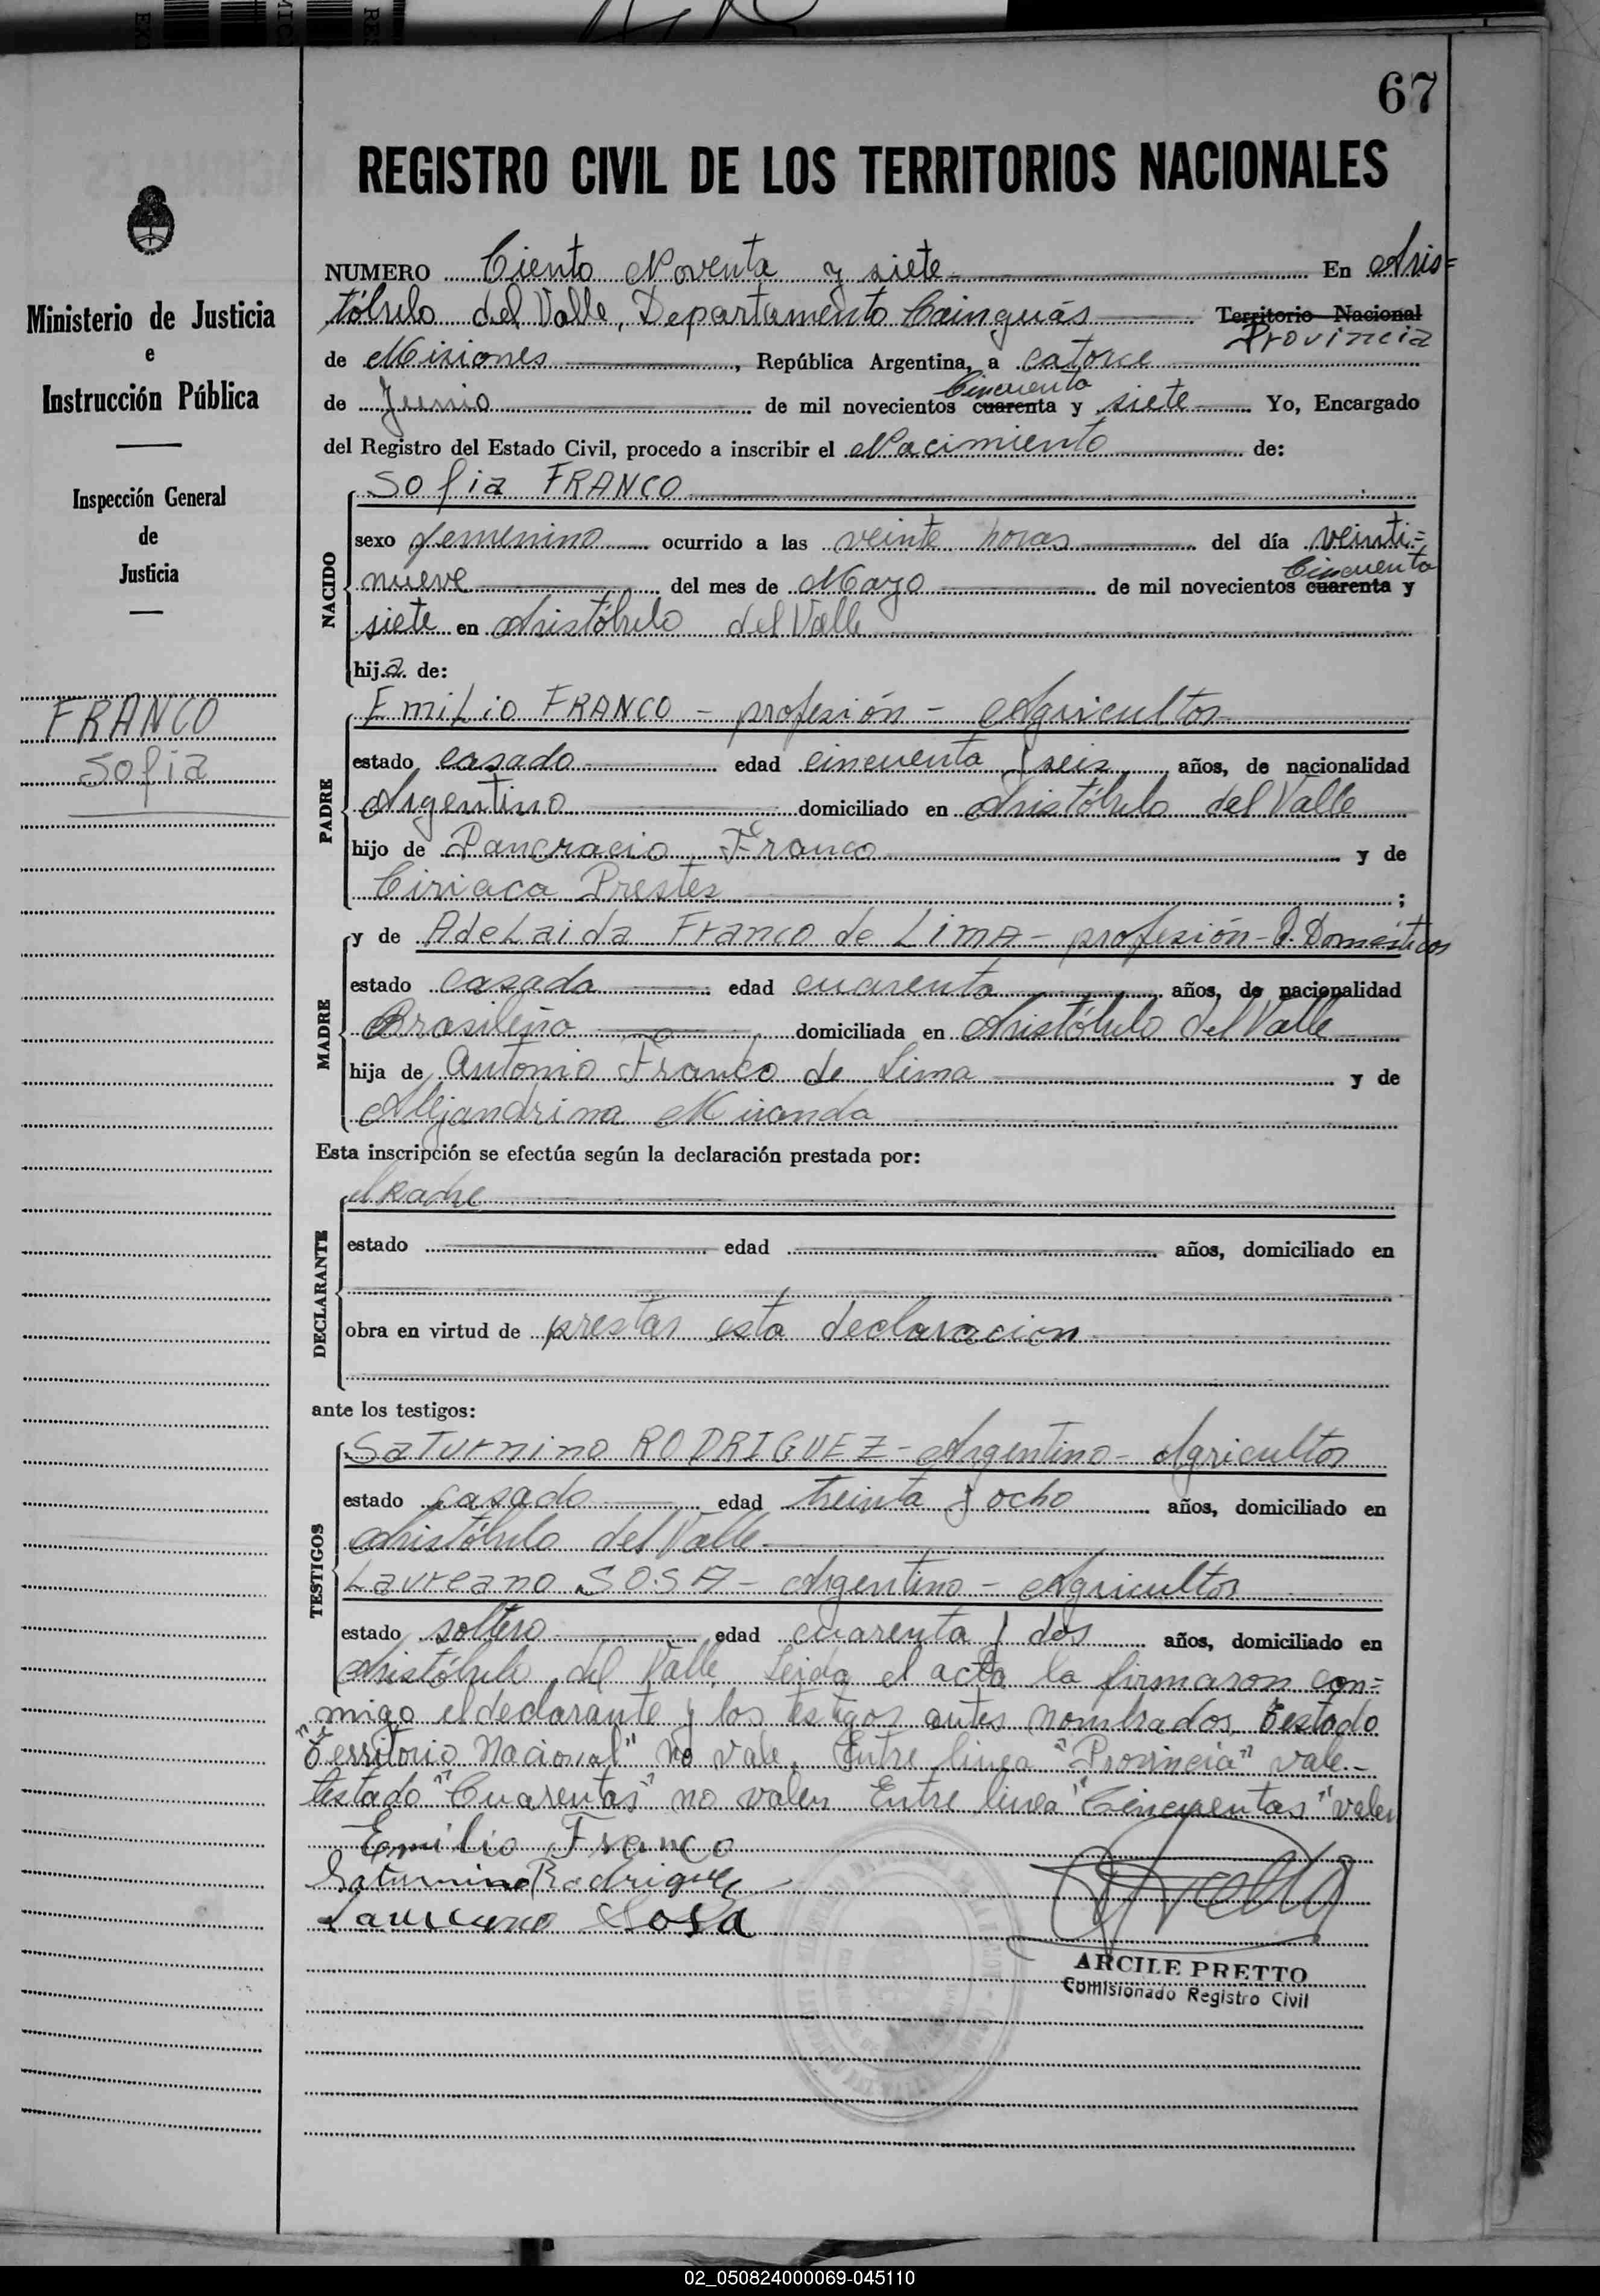 67
REGISTRO CIVIL DE LOS TERRITORIOS NACIONALES
Ministerio de Justicia
e
Instrucción Pública
Inspección General
de
Justicia
FRANCO
Sofia
NUMERO Ciento Noventa y siete En Aris=
tóbulo del Valle, Departamento Cainguás Territorio Nacional
Provincia
de Misiones, República Argentina, a catorce
Cincuenta
de Junio de mil novecientos cuarenta y siete Yo, Encargado
del Registro del Estado Civil, procedo a inscribir el Nacimiento de:
NACIDO
Sofia FRANCO
sexo femenino ocurrido a las veinte horas del día veinti=
Cincuenta
nueve del mes de Mayo de mil novecientos cuarenta y
siete en Aristóbulo del Valle
hija de:
PADRE
Emilio FRANCO - profesión - Agricultor
estado casado edad cincuenta y seis años, de nacionalidad
Argentino domiciliado en Aristóbulo del Valle
hijo de Pancracio Franco y de
Ciriaca Prestes ;
MADRE
y de Adelaida Franco de Lima - profesión - Q. Domésticos
estado casada edad cuarenta años, de nacionalidad
Brasileña domiciliada en Aristóbulo del Valle
hija de Antonio Franco de Lima y de
Alejandrina Miranda
Esta inscripción se efectúa según la declaración prestada por:
DECLARANTE
el Padre
estado edad años, domiciliado en
obra en virtud de prestar esta declaracion
ante los testigos:
TESTIGOS
Saturnino RODRIGUEZ - Argentino - Agricultor
estado casado edad treinta y ocho años, domiciliado en
Aristóbulo del Valle
Laureano SOSA - Argentino - Agricultor
estado soltero edad cuarenta y dos años, domiciliado en
Aristóbulo del Valle. Leida el acta la firmaron con=
migo el declarante y los testigos antes nombrados. Testado
"Territorio Nacional" no vale. Entre linea "Provincia" vale.-
testado "Cuarentas" no valen Entre linea "Cincuentas" valen
Emilio Franco
Saturnino Rodriguez
Laureano Sosa
ARCILE PRETTO
Comisionado Registro Civil
02_050824000069-045110